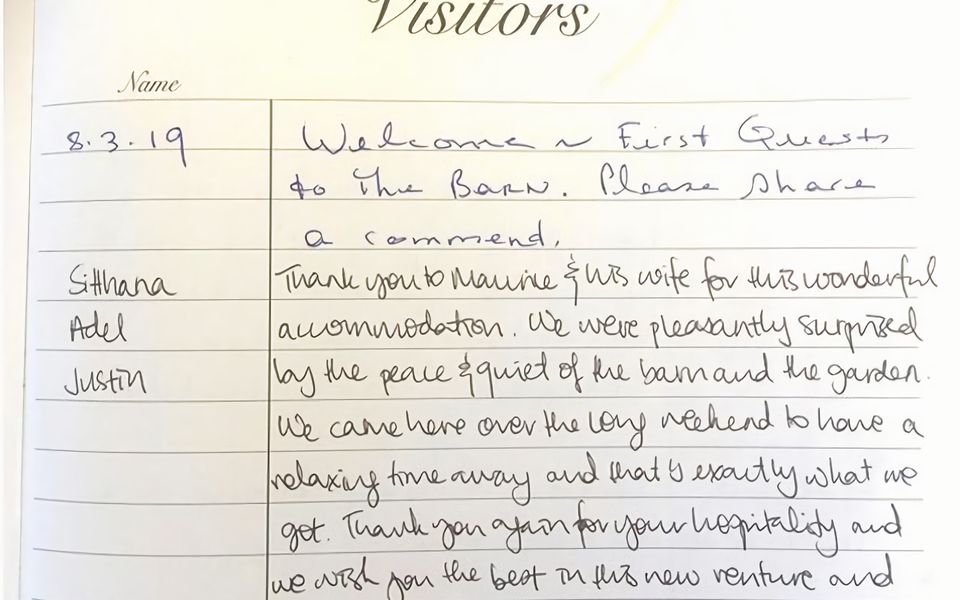 Visitors
Name
8.3.19 Welcome ~ First Guests
to The Barn. Please share
a commend.
Sitthana Thank you to Maurice & his wife for this wonderful
Adel accommodation. We were pleasantly surprised
Justin by the peace & quiet of the barn and the garden.
We came here over the long weekend to have a
relaxing time away and that's exactly what we
get. Thank you again for your hospitality and
we wish you the best in this new venture and